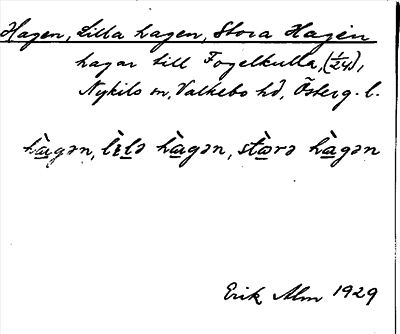 Hagen, Lilla hagen, Stora Hagen
hagar till Fogelkulla, (1/24),
Nykils sn, Valkebo hd, Österg. l.
hàgən, lìlə hàgən, stòrə hàgən
Erik Alm 1929